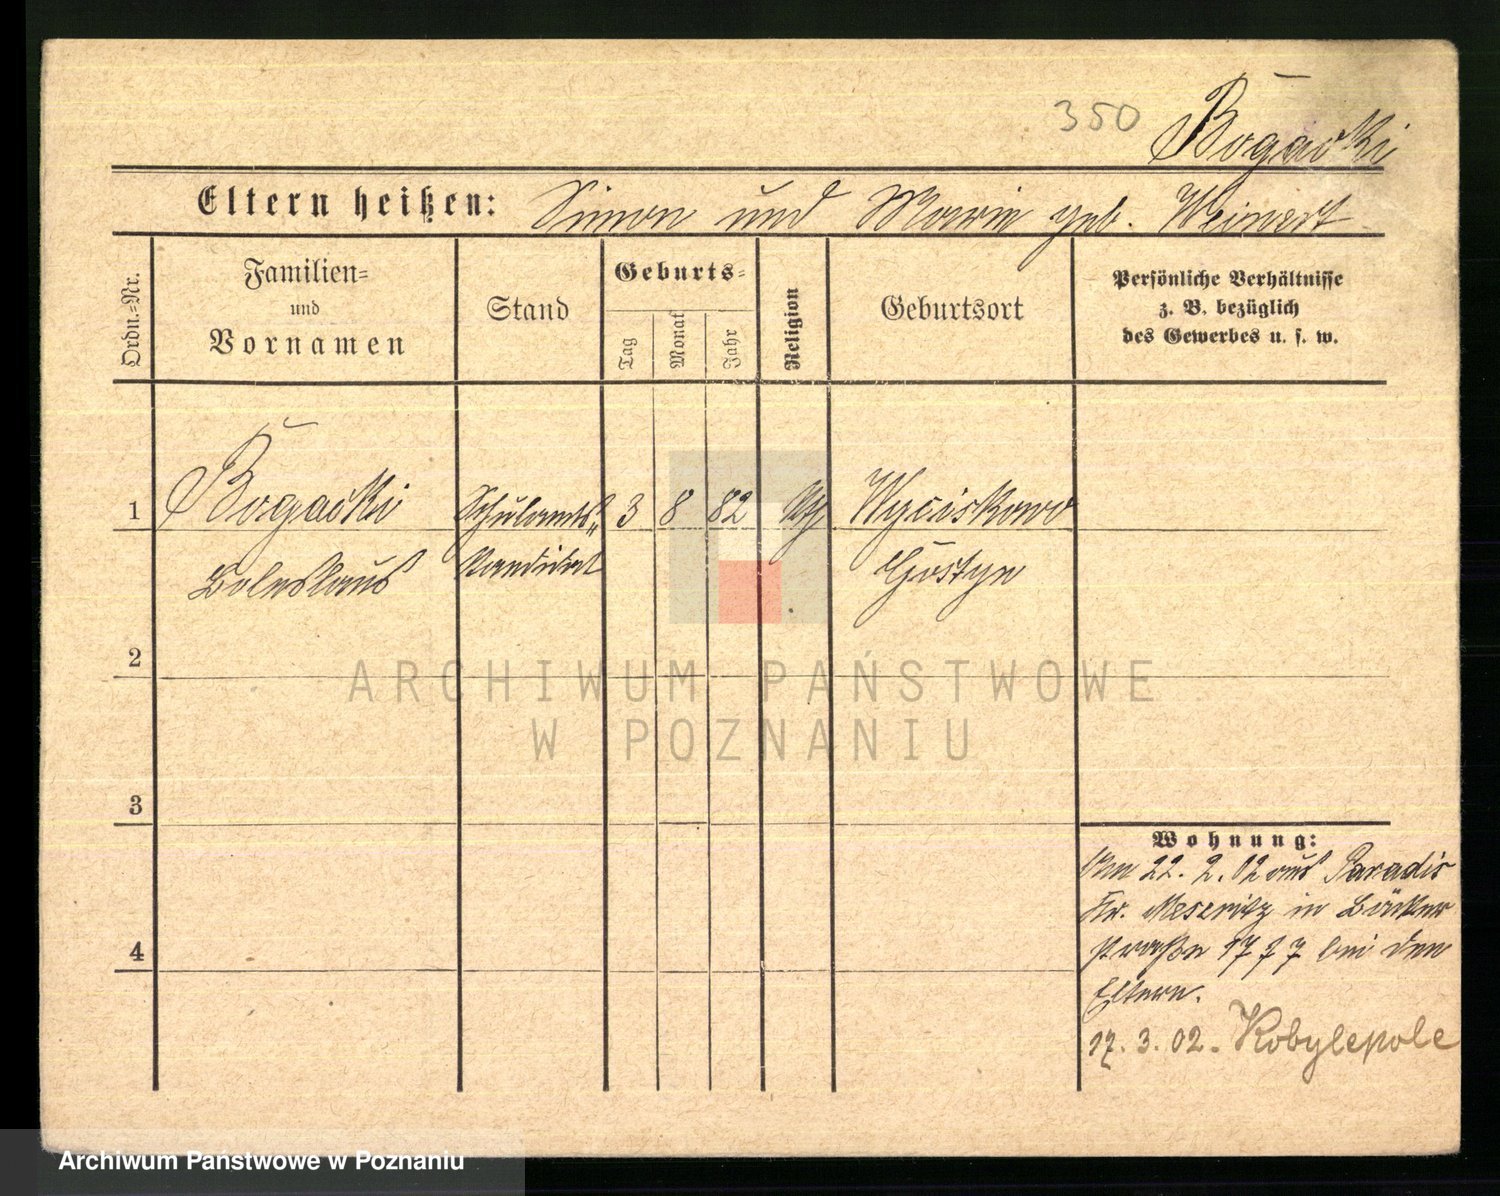 350 Bogacki
Eltern heißen: Simon und Marie geb. Weinert
Ordn.=Nr.
Familien=
und
Vornamen
Stand
Geburts=
Tag
Monat
Jahr
Religion
Geburtsort
Persönliche Verhältnisse
z. B. bezüglich
des Gewerbes u. s. w.
1 Bogacki Schulamts= 3 8 82 Wyciskowo
Boleslaus Kandidat Gostyn
2
3
4
Wohnung:
Am 22. 2. 02 aus Paradis
Kr. Meseritz in Bäcker
straße 17 bei den
Eltern.
17. 3. 02. Kobylepole
ARCHIWUM PAŃSTWOWE
W POZNANIU
Archiwum Państwowe w Poznaniu